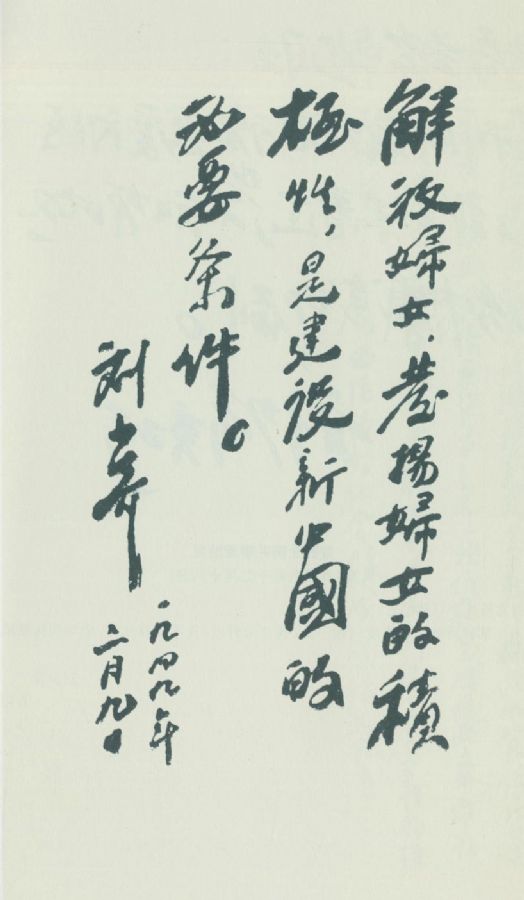 解放婦女、發揚婦女的積
極性，是建設新中國的
必要条件。
刘少奇
一九四九年
三月九日